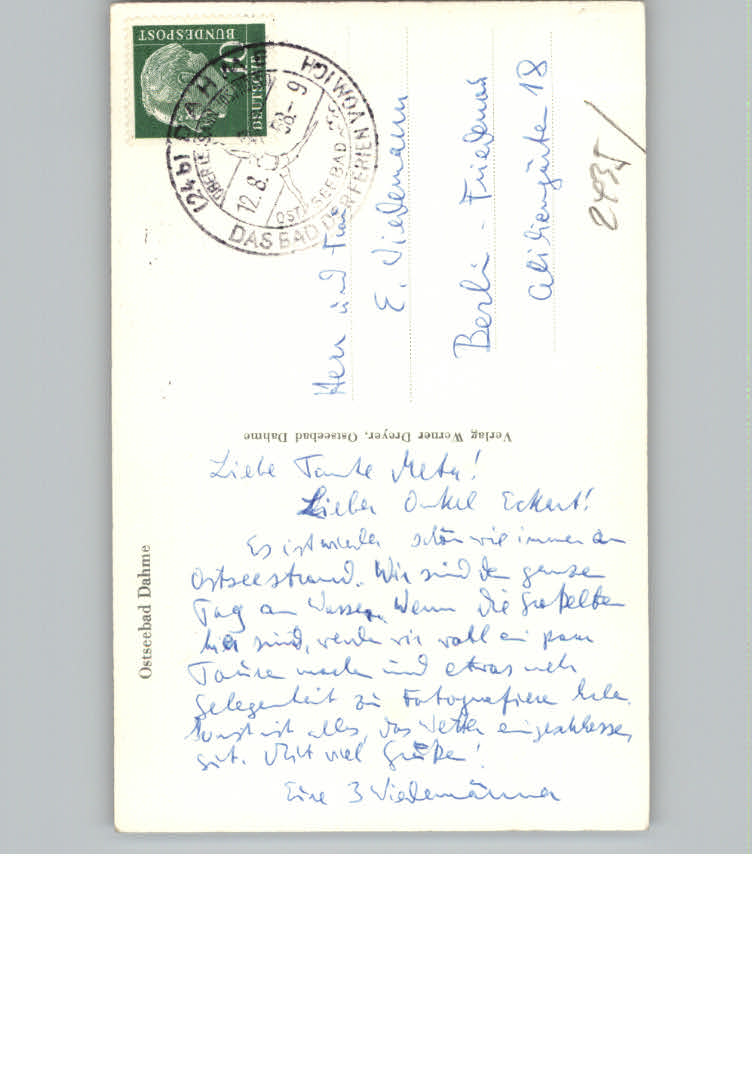 Ostseebad Dahme
Verlag Werner Dreyer, Ostseebad Dahme
DEUTSCHE
BUNDESPOST
10
(24b) DAHME
12.8.58.- 9
OSTSEEBAD
DAS BAD DER FERIEN VOM ICH
Herrn und Frau
E. Wiedemann
Berlin - Friedenau
18
2435
Liebe Tante Meta!
Lieber Onkel Eckart!
Es ist wieder schön wie immer am
Ostseestrand. Wir sind den ganzen
Tag am Wasser. Wenn die Großeltern
hier sind, werden wir wohl ein paar
Touren machen und etwas mehr
Gelegenheit zu Fotografieren haben.
Sonst ist alles, das Wetter eingeschlossen,
gut. Mit viel Grüßen!
Eure 3 Wiedemänner